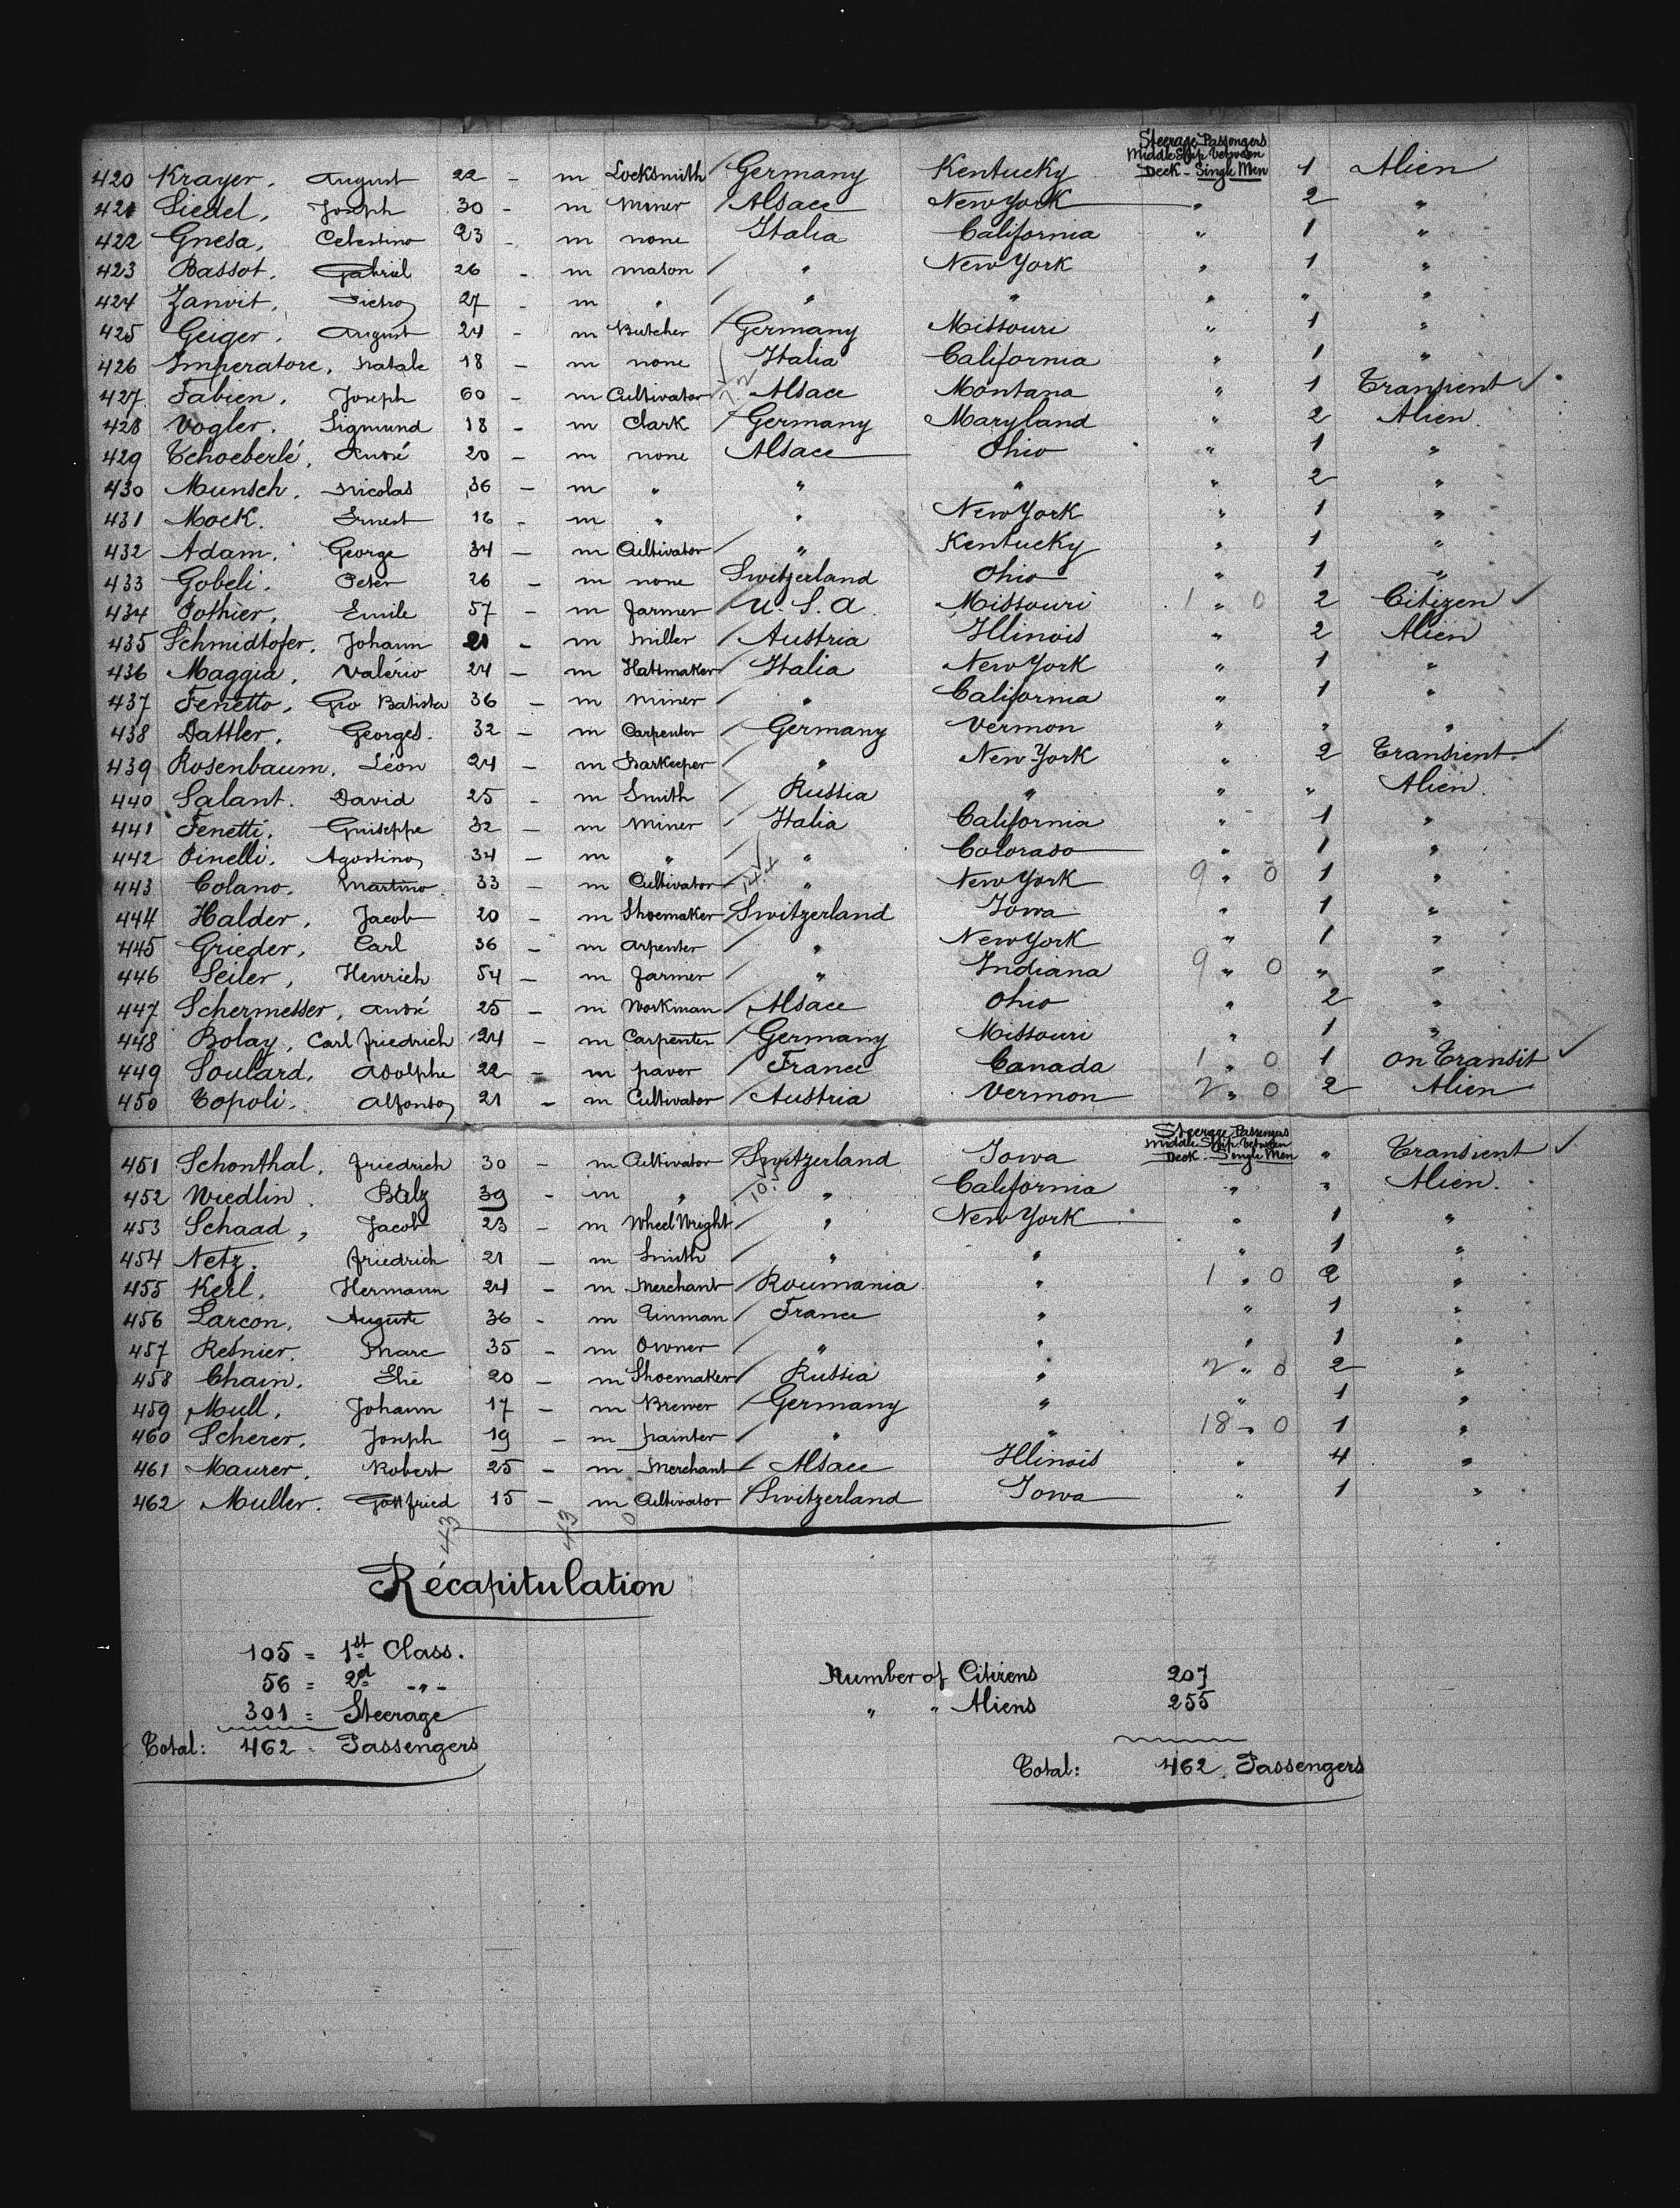 Steerage Passengers
Middle Ship between
Deck - Single Men
420 Krayer, August 22 - m Locksmith / Germany Kentucky 1 Alien
421 Liedel, Joseph 30 - m Miner / Alsace New York " 2 "
422 Gnesa, Celestino 23 - m none Italia California " 1 "
423 Bassot, Gabriel 26 - m mason / " New York " 1 "
424 Zanvit, Pietro 27 - m " / " " " " "
425 Geiger, August 24 - m Butcher / Germany Missouri " 1 "
426 Imperatore, Natale 18 - m none Italia California " 1 "
427 Fabien, Joseph 60 - m Cultivator Alsace Montana " 1 Transient ✓
428 Vogler, Sigmund 18 - m Clark / Germany Maryland " 2 Alien
429 Tchoeberlé, André 20 - m none Alsace Ohio " 1 "
430 Munsch, Nicolas 36 - m " " " " 2 "
431 Mock, Ernest 16 - m " " New York " 1 "
432 Adam, George 34 - m Cultivator / " Kentucky " 1 "
433 Gobeli, Peter 26 - m none Switzerland Ohio " 1 "
434 Pothier, Emile 57 - m farmer / U.S.A. Missouri 1 " 0 2 Citizen ✓
435 Schmidtofer, Johann 21 - m Miller / Austria Illinois " 2 Alien
436 Maggia, Valério 24 - m Hattmaker / Italia New York " 1 "
437 Fenetto, Gio Batista 36 - m Miner / " California " 1 "
438 Dattler, Georges 32 - m Carpenter / Germany Vermon " " "
439 Rosenbaum, Léon 24 - m Barkeeper / " New York " 2 Transient ✓
440 Salant, David 25 - m Smith / Russia " " " Alien
441 Fenetti, Guiseppe 32 - m Miner / Italia California " 1 "
442 Pinelli, Agostino 34 - m " / " Colorado " 1 "
443 Colano, Martino 33 - m Cultivator / 144 " New York 9 " 0 1 "
444 Halder, Jacob 20 - m Shoemaker / Switzerland Iowa " 1 "
445 Grieder, Carl 36 - m arpenter / " New York " 1 "
446 Seiler, Henrich 54 - m farmer / " Indiana 9 " 0 " "
447 Schermesser, André 25 - m Workman / Alsace Ohio " 2 "
448 Bolay, Carl Friedrich 24 - m Carpenter / Germany Missouri " 1 "
449 Soulard, Adolphe 22 - m paver / France Canada 1 " 0 1 on Transit ✓
450 Topoli, Alfonso 21 - m Cultivator / Austria Vermon 2 " 0 2 Alien
Steerage Passengers
Middle Ship between
Deck - Single Men
451 Schonthal, Friedrich 30 - m Cultivator / Switzerland Iowa " Transient ✓
452 Wiedlin, Balz 39 - m " / 105 " California " " Alien
453 Schaad, Jacob 23 - m Wheel Wright / " New York " 1 "
454 Netz, Friedrich 21 - m Smith / " " " 1 "
455 Kerl, Hermann 24 - m Merchant / Roumania " 1 " 0 2 "
456 Larcon, Auguste 36 - m Tinman / France " " 1 "
457 Resnier, Marc 35 - m Owner / " " " 1 "
458 Chain, Elie 20 - m Shoemaker / Russia " 2 " 0 2 "
459 Mull, Johann 17 - m Brewer / Germany " " 1 "
460 Scherer, Joseph 19 - m painter / " " 18 " 0 1 "
461 Maurer, Robert 25 - m Merchant / Alsace Illinois " 4 "
462 Muller, Gottfried 15 - m Cultivator / Switzerland Iowa " 1 "
43 43 0
Récapitulation
105 = 1st Class.
56 = 2d -"-
301 = Steerage
Total: 462 Passengers
Number of Citizens 207
" " Aliens 255
Total: 462 Passengers